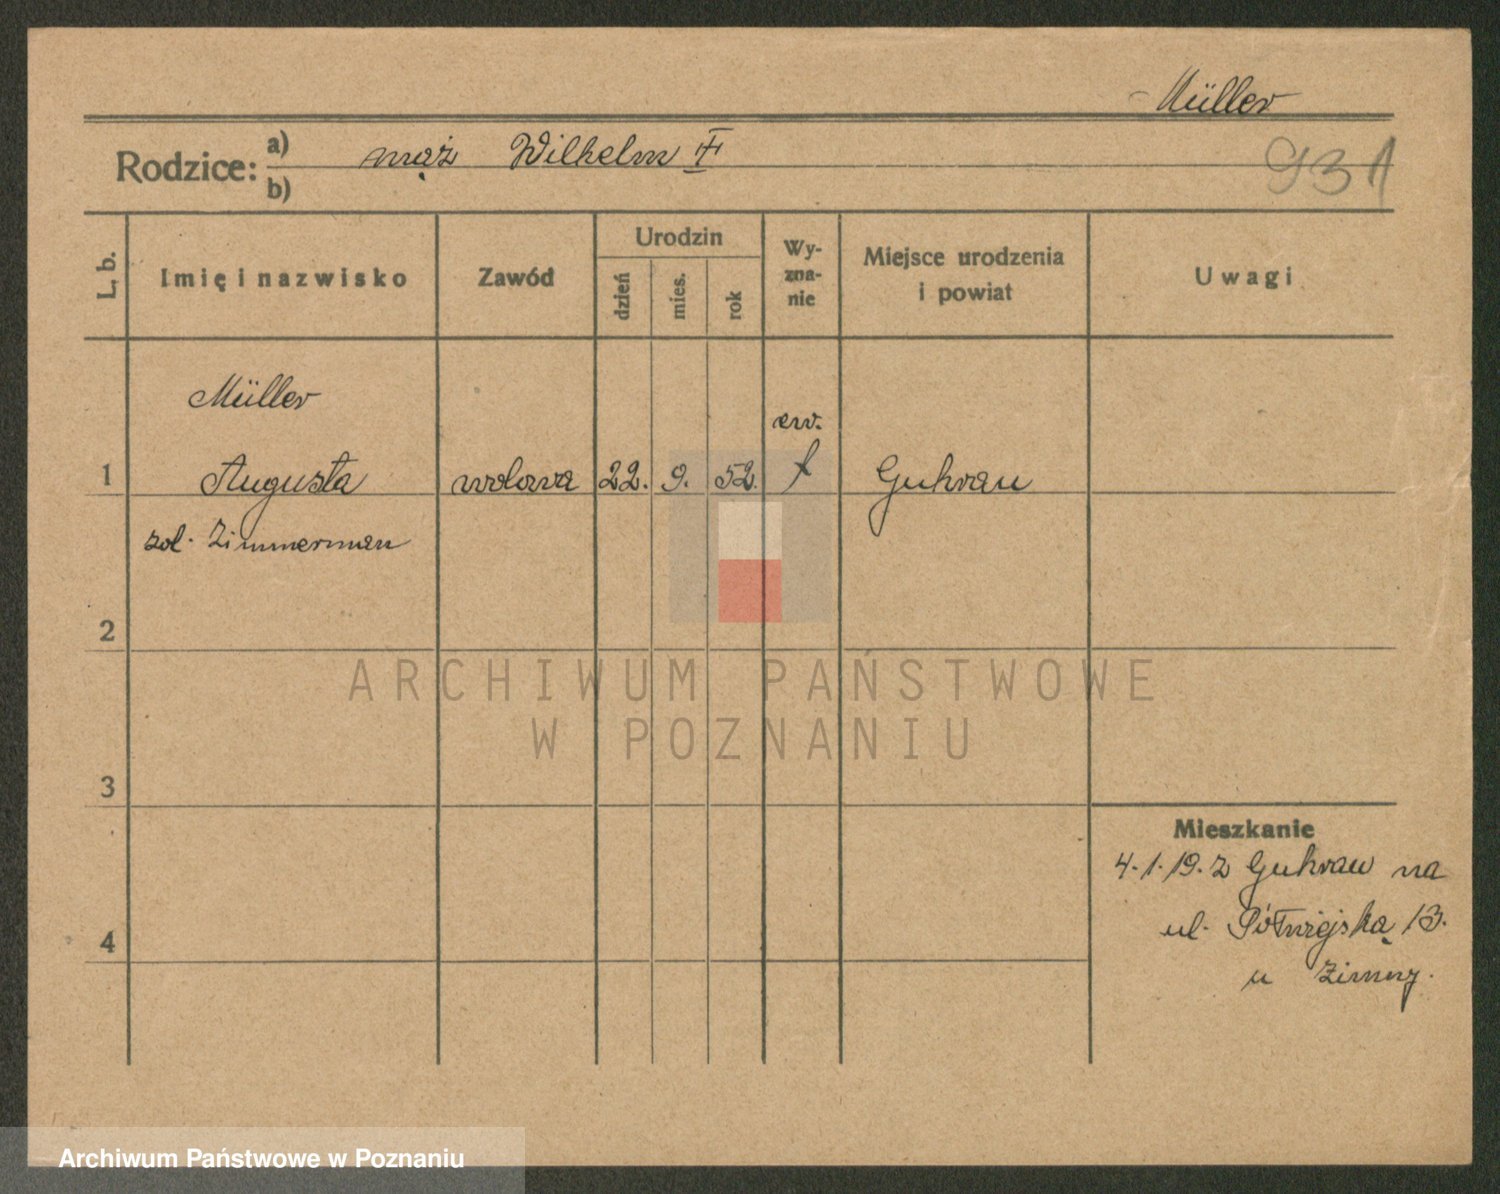 Müller
Rodzice: a) mąż Wilhelm
b)
931
L. b.
Imię i nazwisko
Zawód
Urodzin
dzień
mies.
rok
Wy-
zna-
nie
Miejsce urodzenia
i powiat
Uwagi
Müller
ew.
1 Augusta wdowa 22. 9. 52. Guhrau
zol. Zimmerman
2
ARCHIWUM PAŃSTWOWE
W POZNANIU
3
Mieszkanie
4.1.19. z Guhrau na
ul. Półwiejską 13.
4
u
Archiwum Państwowe w Poznaniu